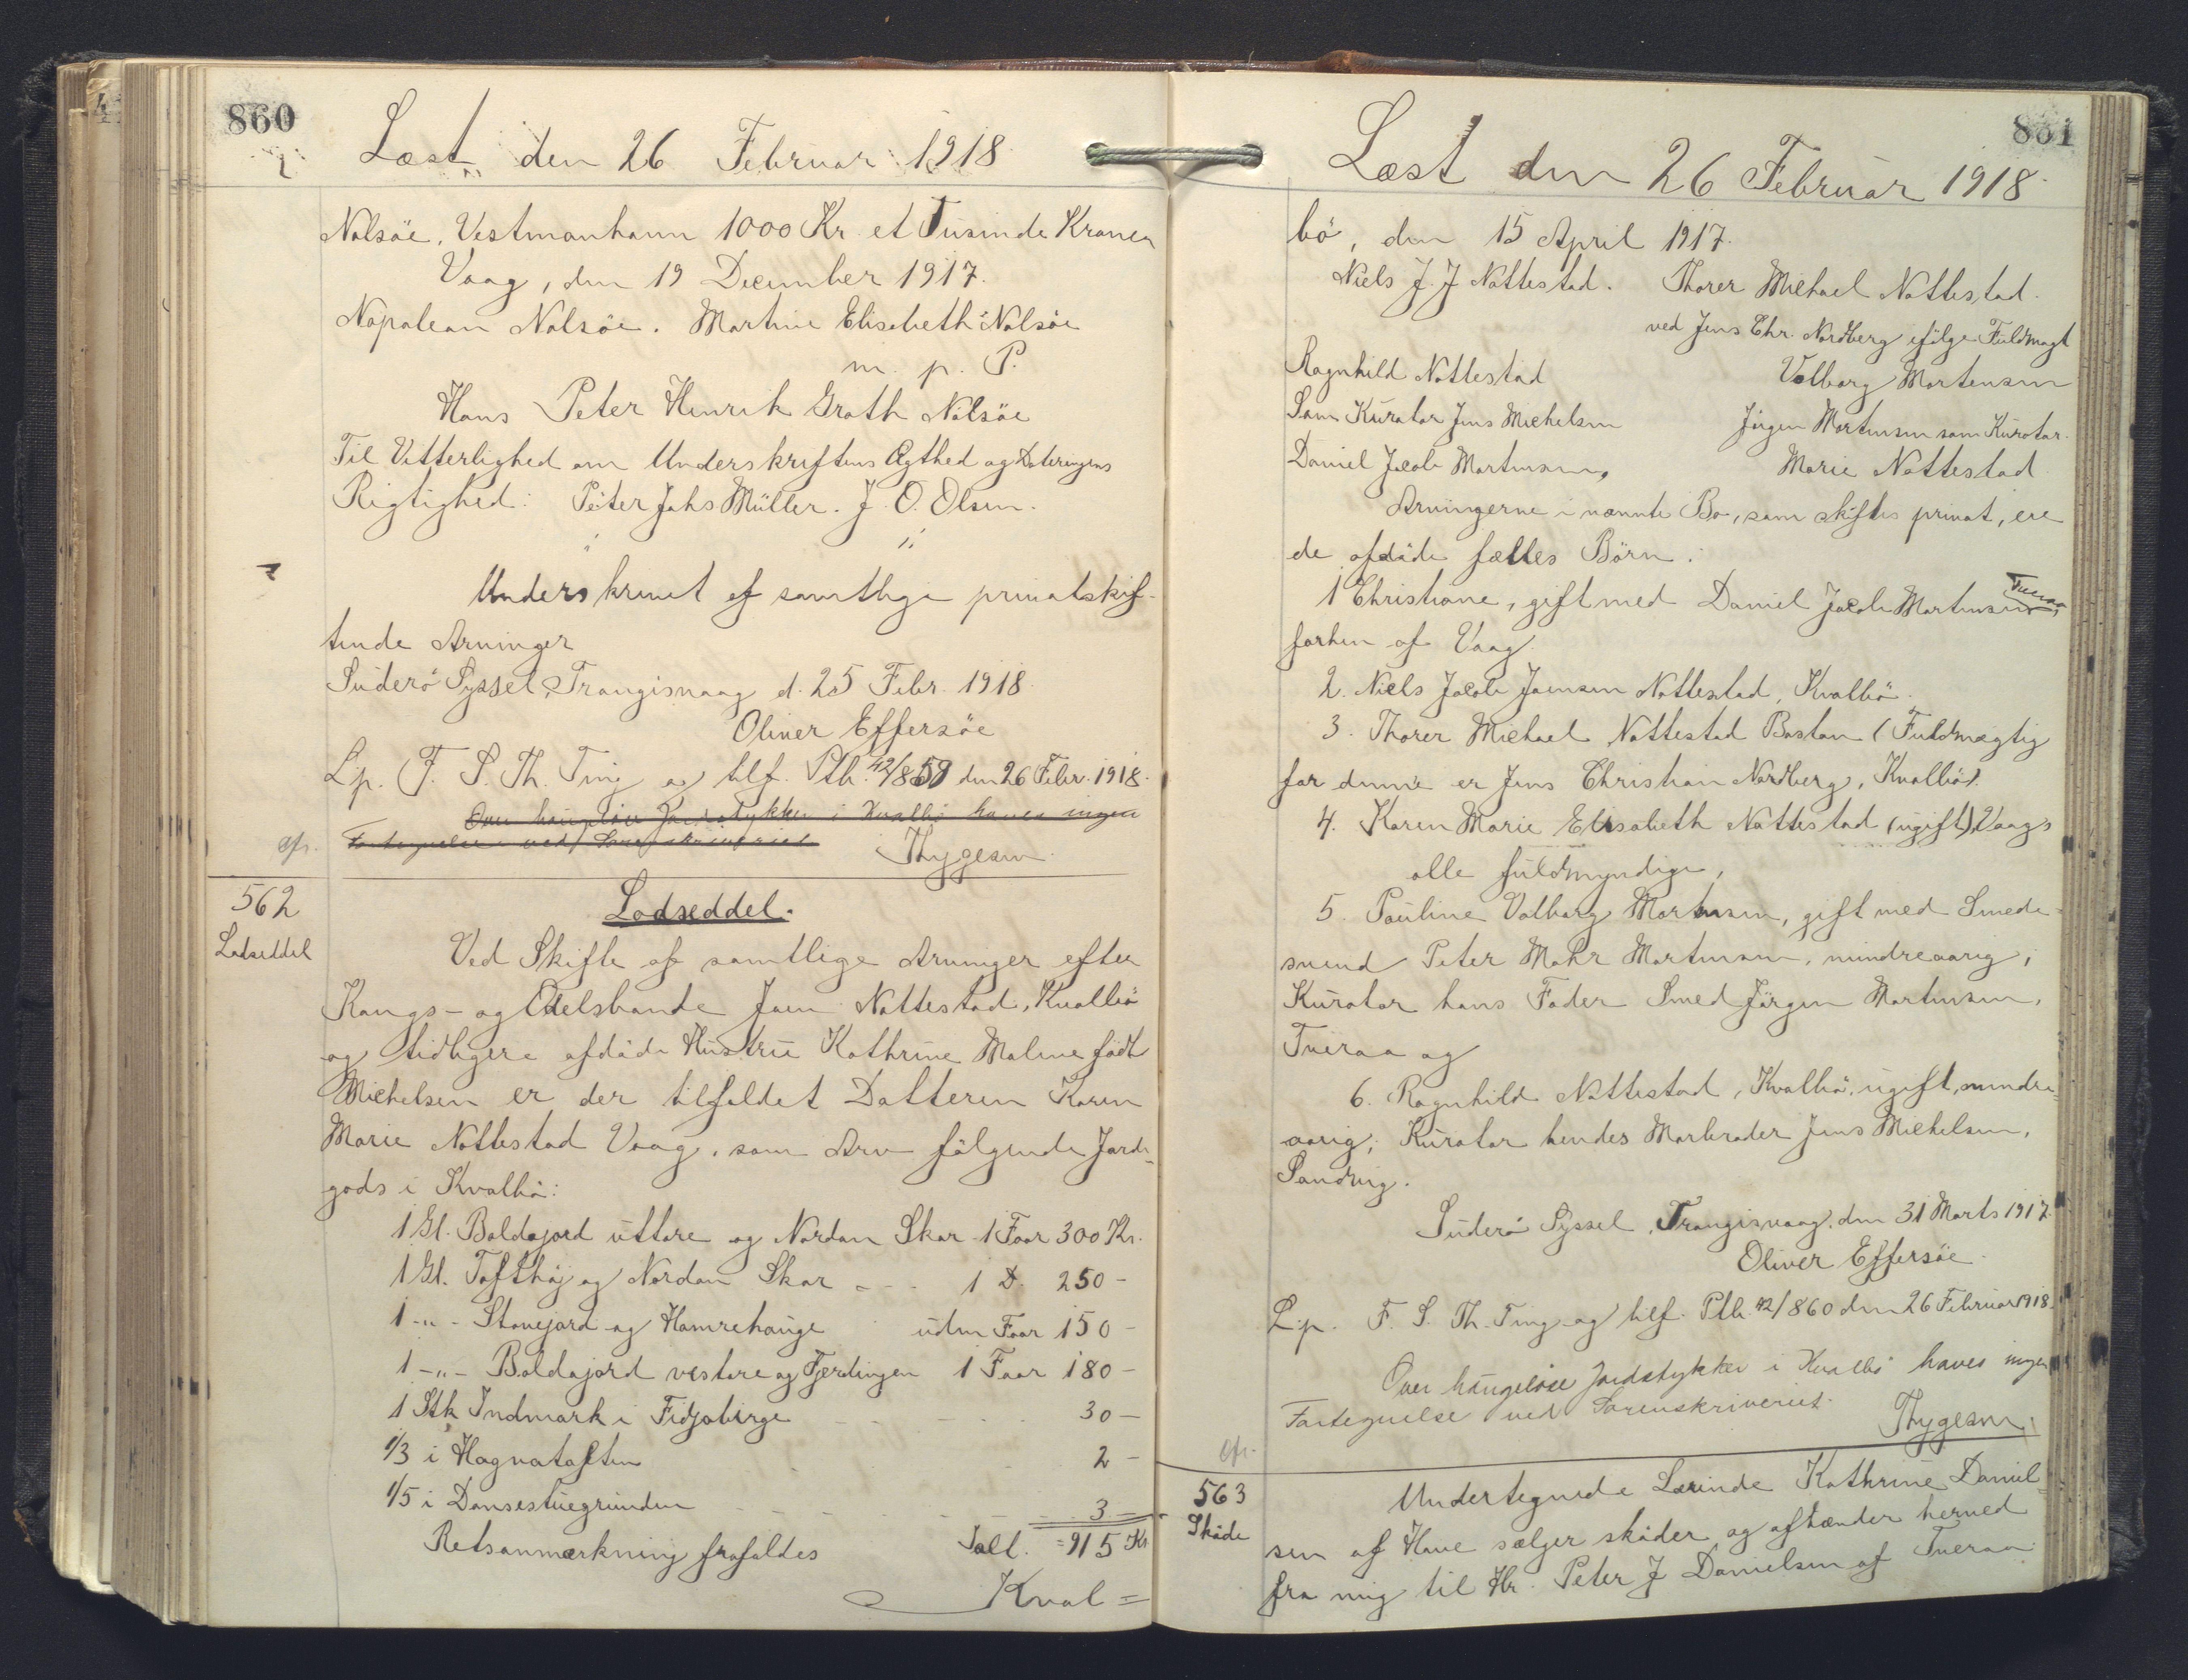 860
Læst den 26 Februar 1918
Nolsöe, Vestmanhavn 1000 Kr. et Tusinde Kroner
Vaag, den 19 December 1917.
Napolean Nolsöe. Martine Elisebeth Nolsöe
m. p. P.
Hans Peter Henrik Groth Nolsöe
Til Vitterlighed om Underskriftens Ægthed og Dateringens
Rigtighed: Peter Johs Müller. J. O. Olsen.
Underskrevet af samtlige privatskif-
tende Arvinger
Suderö Syssel, Trangisvaag d. 25 Febr. 1918.
Oliver Effersöe
L.p. F. S. Th. Ting og tilf. Ptb. 42/859 den 26 Febr. 1918.
Over haugelöse Jordstykker i Kvalbö haves ingen
cfr. Fortegnelse ved Sorenskriveriet
Thygesen
562
Lodseddel
Lodseddel.
Ved Skifte af samtlige Arvinger efter
Kongs- og Odelsbonde Joen Nottestad, Kvalbö
og tidligere afdöde Hustru Kathrine Maline födt
Michelsen er der tilfaldet Datteren Karen
Marie Nottestad Vaag, som Arv fölgende Jorde-
gods i Kvalbö:
1 Gl. Boldajord uttare og Nordan Skar 1 Faar 300 Kr.
1 Gl. Tofthöj og Nordan Skar - - - 1 D. 250 -
1 -"- Stovejord og Hamrehauge uden Faar 150 -
1 -"- Boldajord vestare og Fjerdingen 1 Faar 180 -
1 Stk Indmark i Fidjabirge 30 -
1/3 i Hagnatoften 2 -
1/5 i Dansestuegrunden 3 -
Retsanmærkning frafaldes Ialt. = 915 Kr.
Kval =
861
Læst den 26 Februar 1918.
bö, den 15 April 1917.
Niels J. J Nottestad. Thorer Michael Nottestad.
ved Jens Chr. Nordberg ifölge Fuldmagt
Ragnhild Nottestad Valborg Mortensen
Som Kurator Jens Michelsen Jörgen Mortensen som Kurator.
Daniel Jacob Mortensen, Marie Nottestad
Arvingerne i nævnte Bo, som skiftes privat, ere
de afdöde fælles Börn:
1 Christiane, gift med Daniel Jacob Mortensen, Tveraa
forhen af Vaag.
2. Niels Jacob Joensen Nottestad, Kvalbö.
3. Thorer Michael Nottestad Boston (Fuldmægtig
for denne er Jens Christian Nordberg, Kvalbö).
4. Karen Marie Elisabeth Nottestad (ugift), Vaag,
alle fuldmyndige,
5. Pauline Valborg Mortensen, gift med Smede-
svend Peter Mohr Mortensen, mindreaarig;
Kurator hans Fader Smed Jörgen Mortensen,
Tveraa og
6. Ragnhild Nottestad, Kvalbö, ugift, mindre-
aarig; Kurator hendes Morbroder Jens Michelsen,
Sandvig.
Suderö Syssel, Trangisvaag, den 31 Marts 1917.
Oliver Effersöe
L.p. F. S. Th. Ting og tilf. Ptb. 42/860 den 26 Februar 1918.
Over haugelöse Jordstykker i Kvalbö haves ingen
Fortegnelse ved Sorenskriveriet.
cfr. Thygesen.
563
Sköde
Undertegnede Lærinde Kathrine Daniel-
sen af Hove sælger sköder og afhænder herved
fra mig til Hr. Peter J Danielsen af Tveraa